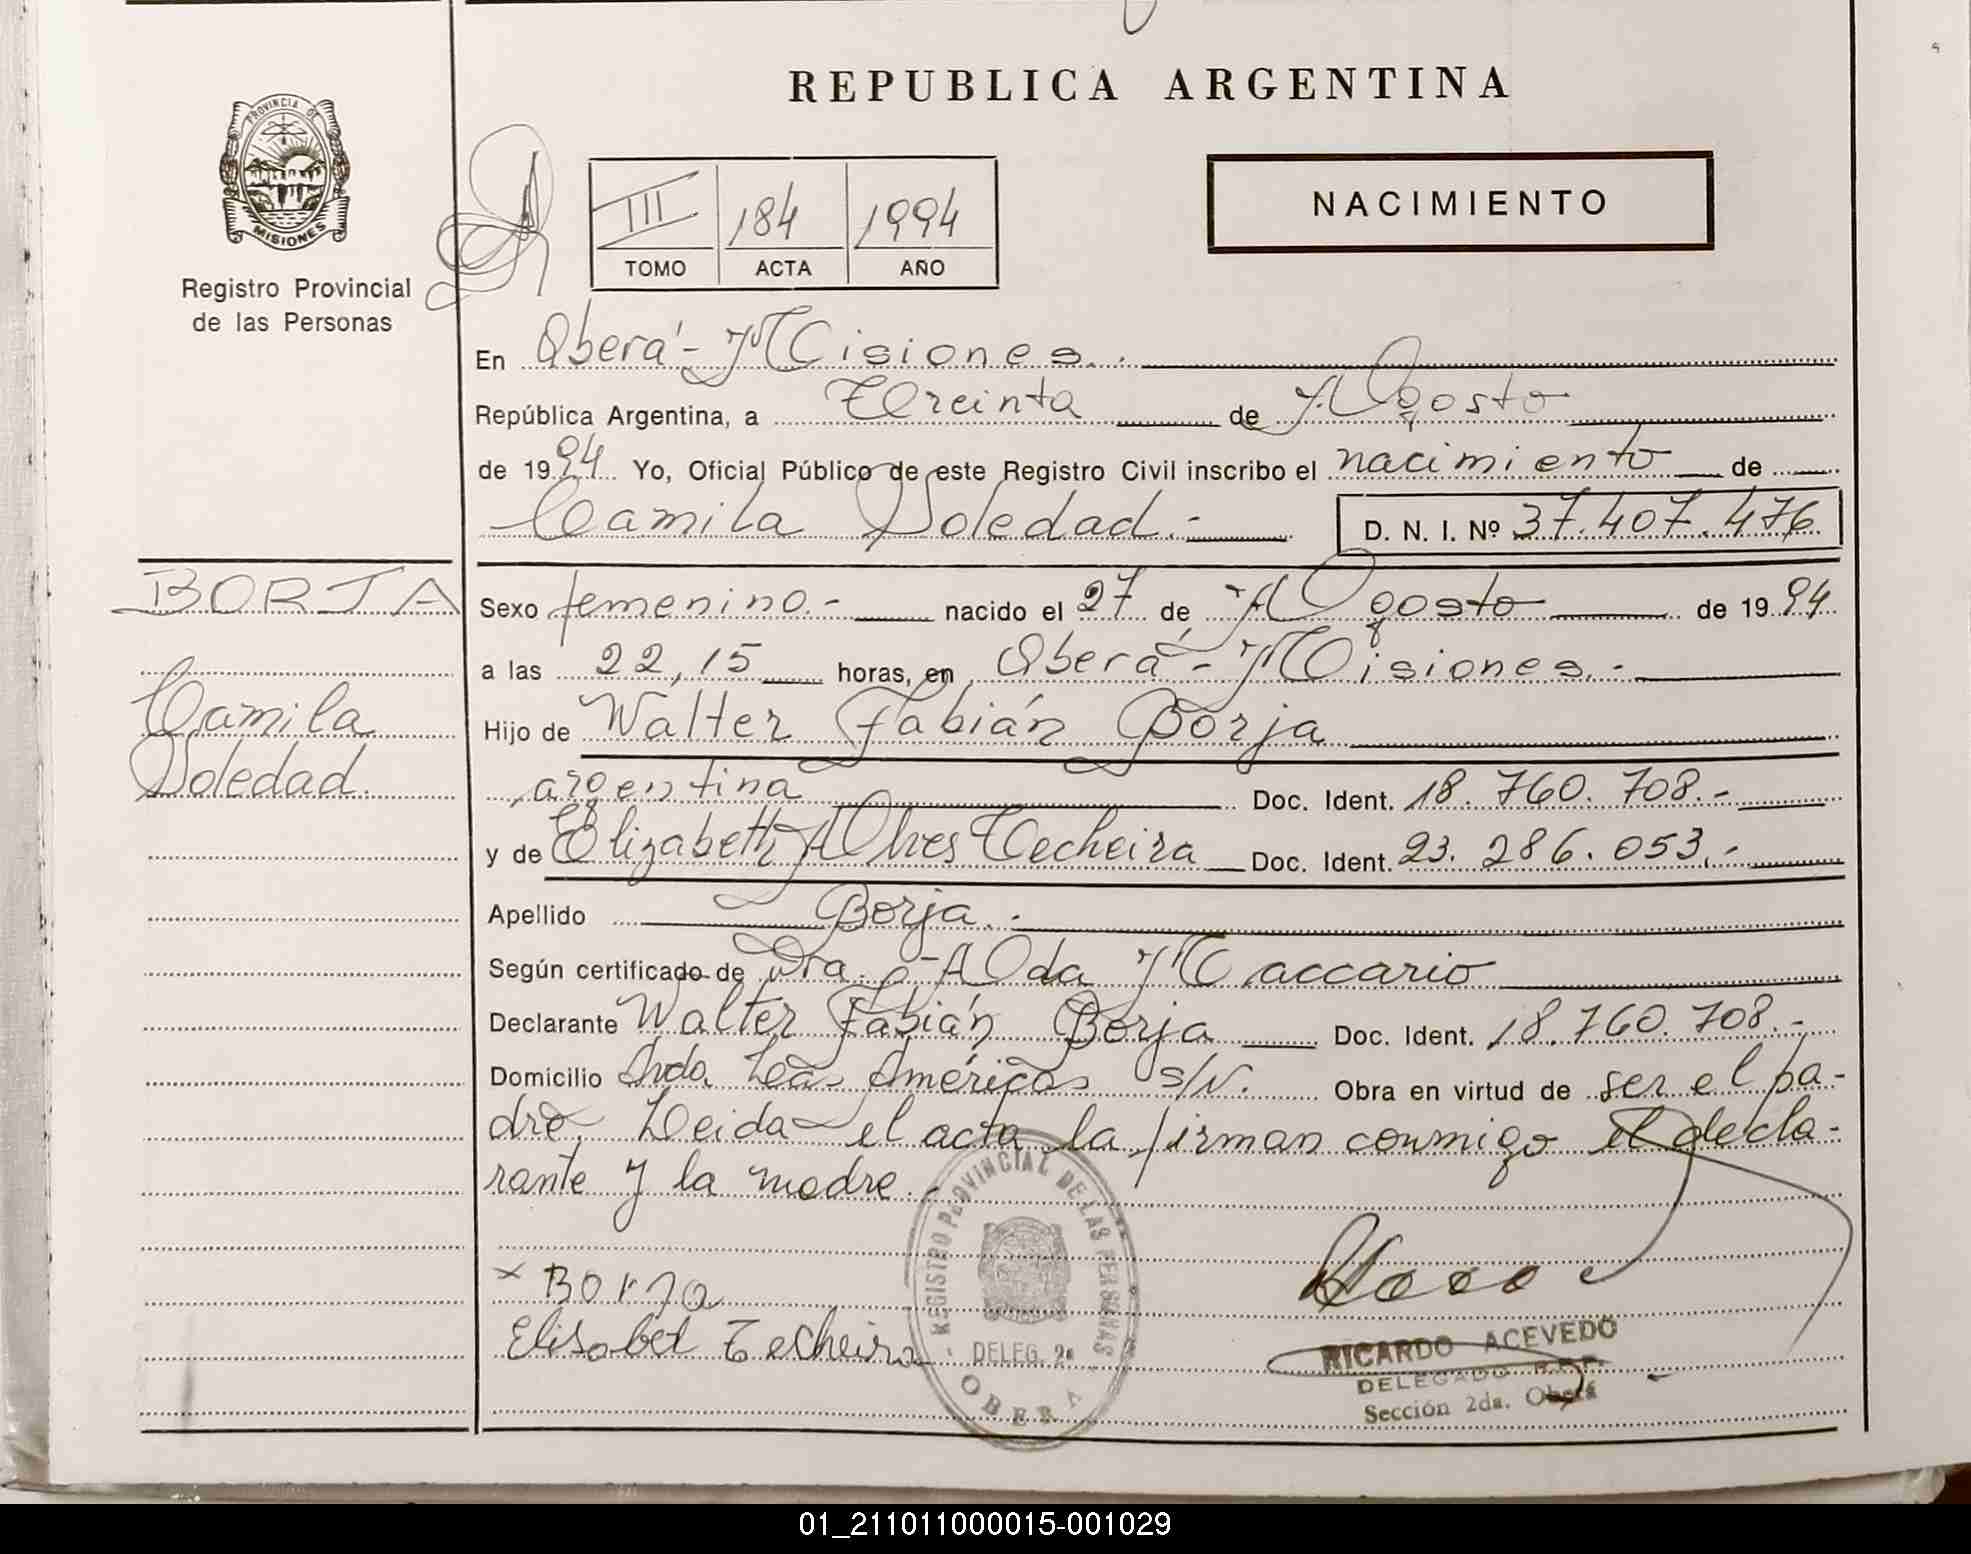 REPUBLICA ARGENTINA
PROVINCIA DE
MISIONES
Registro Provincial
de las Personas
III 184 1994
TOMO ACTA AÑO
NACIMIENTO
En Oberá - Misiones.
República Argentina, a Treinta de Agosto
de 1994. Yo, Oficial Público de este Registro Civil inscribo el nacimiento de
Camila Soledad.- D. N. I. Nº 37.407.476
BORJA
Camila
Soledad.
Sexo femenino.- nacido el 27 de Agosto de 1994
a las 22,15 horas, en Oberá - Misiones.-
Hijo de Walter Fabián Borja
argentina Doc. Ident. 18.760.708.-
y de Elizabeth Alves Techeira Doc. Ident. 23.286.053.-
Apellido Borja.-
Según certificado de Dra. Alda Maccario
Declarante Walter Fabián Borja Doc. Ident. 18.760.708.-
Domicilio Avda. Las Américas s/N. Obra en virtud de ser el pa-
dre. Leida el acta la firman conmigo el decla-
rante y la madre.-
x Borja
Elisabet Techeira
REGISTRO PROVINCIAL DE LAS PERSONAS
DELEG. 2a
OBERA
RICARDO ACEVEDO
DELEGADO R.P.P.
Sección 2da. Oberá
01_211011000015-001029